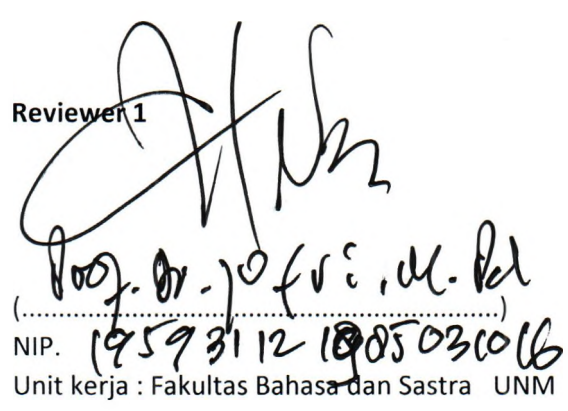 Reviewer 1
Prof. Dr. Jufri, M.Pd
(............................................................)
NIP. 19593112 1985031016
Unit kerja : Fakultas Bahasa dan Sastra UNM